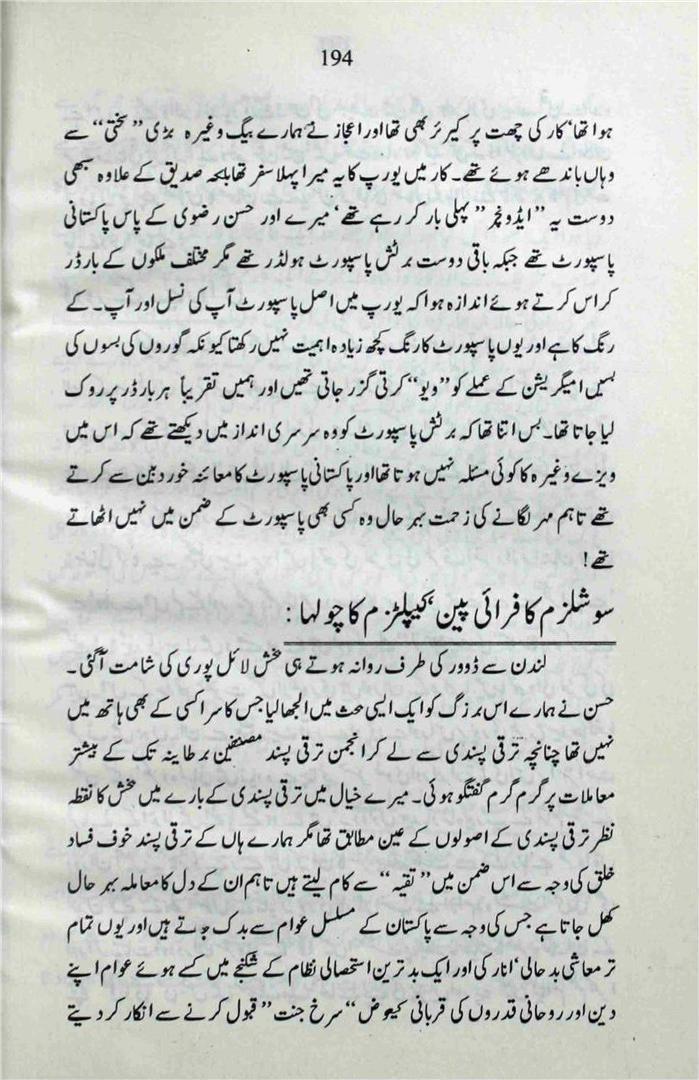 194
ہوا تھا‘ کار کی چھت پر کیرئر بھی تھا اور اعجاز نے ہمارے بیگ وغیرہ بڑی ’’سختی‘‘ سے
وہاں باندھے ہوئے تھے۔ کار میں یورپ کا یہ میرا پہلا سفر تھا بلکہ صدیق کے علاوہ سبھی
دوست یہ ’’ایڈونچر‘‘ پہلی بار کر رہے تھے‘ میرے اور حسن رضوی کے پاس پاکستانی
پاسپورٹ تھے جبکہ باقی دوست برٹش پاسپورٹ ہولڈر تھے مگر مختلف ملکوں کے بارڈر
کراس کرتے ہوئے اندازہ ہوا کہ یورپ میں اصل پاسپورٹ آپ کی نسل اور آپ۔ کے
رنگ کا ہے اور یوں پاسپورٹ کا رنگ کچھ زیادہ اہمیت نہیں رکھتا کیونکہ گوروں کی بسوں کی
بسیں امیگریشن کے عملے کو ’’ویو‘‘ کرتی گزر جاتی تھیں اور ہمیں تقریباً ہر بارڈر پر روک
لیا جاتا تھا۔ بس اتنا تھا کہ برٹش پاسپورٹ کو وہ سرسری انداز میں دیکھتے تھے کہ اس میں
ویزے وغیرہ کا کوئی مسئلہ نہیں ہوتا تھا اور پاکستانی پاسپورٹ کا معائنہ خوردبین سے کرتے
تھے تاہم مہر لگانے کی زحمت بہر حال وہ کسی بھی پاسپورٹ کے ضمن میں نہیں اٹھاتے
تھے!
سوشلزم کا فرائی پین‘ کیپلٹزم کا چولہا :
لندن سے ڈوور کی طرف روانہ ہوتے ہی بخش لائل پوری کی شامت آگئی۔
حسن نے ہمارے اس بزرگ کو ایک ایسی بحث میں الجھا لیا جس کا سرا کسی کے بھی ہاتھ میں
نہیں تھا چنانچہ ترقی پسندی سے لے کر انجمن ترقی پسند مصنفین برطانیہ تک کے بیشتر
معاملات پر گرم گرم گفتگو ہوئی۔ میرے خیال میں ترقی پسندی کے بارے میں بخش کا نقطہ
نظر ترقی پسندی کے اصولوں کے عین مطابق تھا مگر ہمارے ہاں کے ترقی پسند خوف فساد
خلق کی وجہ سے اس ضمن میں ’’تقیہ‘‘ سے کام لیتے ہیں تاہم ان کے دل کا معاملہ بہر حال
کھل جاتا ہے جس کی وجہ سے پاکستان کے مسلسل عوام سے بدک جاتے ہیں اور یوں تمام
تر معاشی بدحالی‘ انارکی اور ایک بدترین استحصالی نظام کے شکنجے میں کسے ہوئے عوام اپنے
دین اور روحانی قدروں کی قربانی کیعوض ’’سرخ جنت‘‘ قبول کرنے سے انکار کر دیتے